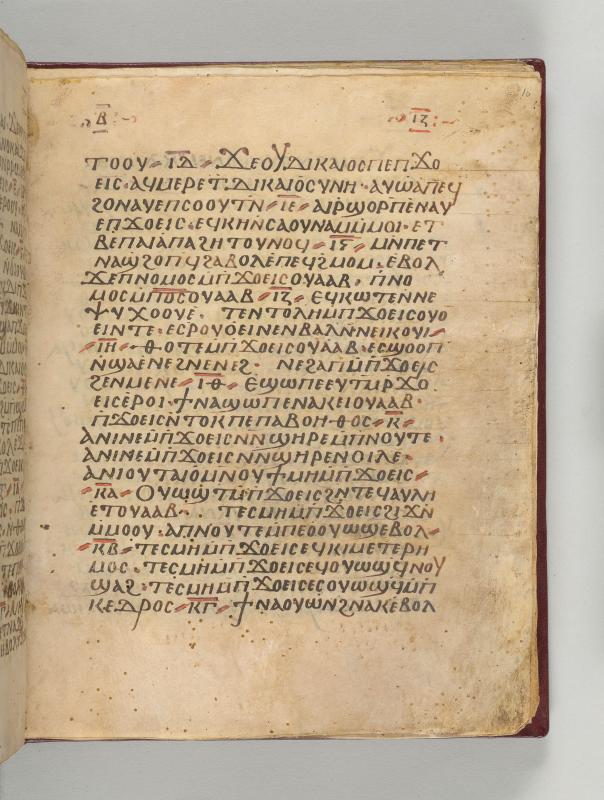 Ⲃ ⲒⲌ
ⲧⲟⲟⲩ ⲓⲇ ϫⲉⲟⲩⲇⲓⲕⲁⲓⲟⲥⲡⲉⲡϫⲟ
ⲉⲓⲥ ⲁϥⲙⲉⲣⲉⲧⲇⲓⲕⲁⲓⲟⲥⲩⲛⲏ ⲁⲩⲱⲁⲡⲉϥ
ϩⲟⲛⲁⲩⲉⲡⲥⲟⲟⲩⲧⲛ ⲓⲉ ⲁⲓⲣϣⲟⲣⲡⲉⲛⲁⲩ
ⲉⲡϫⲟⲉⲓⲥ ⲉϥⲕⲏⲛⲥⲁⲟⲩⲛⲁⲙⲙⲟⲓ ⲉⲧ
ⲃⲉⲡⲁⲓⲁⲡⲁϩⲏⲧⲟⲩⲛⲟϥ ⲓⲋ ⲙⲛⲡⲉⲧ
ⲛⲁϣϩⲟⲡϥϩⲁⲃⲟⲗⲉⲡⲉϥϩⲙⲟⲙ ⲉⲃⲟⲗ
ϫⲉⲡⲛⲟⲙⲟⲥⲙⲡϫⲟⲉⲓⲥⲟⲩⲁⲁⲃ ⲡⲛⲟ
ⲙⲟⲥⲙⲡⲟⲥⲟⲩⲁⲁⲃ ⲓⲍ ⲉϥⲕⲱⲧⲉⲛⲛⲉ
ⲯⲩⲭⲟⲟⲩⲉ ⲧⲉⲛⲧⲟⲗⲏⲙⲡϫⲟⲉⲓⲥⲟⲩⲟ
ⲉⲓⲛⲧⲉ ⲉⲥⲣⲟⲩⲟⲉⲓⲛⲉⲛⲃⲁⲗⲛⲛⲉⲓⲕⲟⲩⲓ
ⲓⲏ ⲑⲟⲧⲉⲙⲡϫⲟⲉⲓⲥⲟⲩⲁⲁⲃ ⲉⲥϣⲟⲟⲡ
ⲛϣⲁⲉⲛⲉϩⲛⲉⲛⲉϩ ⲛⲉϩⲁⲡⲙⲡϫⲟⲉⲓⲥ
ϩⲉⲛⲙⲉⲛⲉ ⲓⲑ ⲉϣⲱⲡⲉⲉⲩⲧⲙⲣϫⲟ
ⲉⲓⲥⲉⲣⲟⲓ ϯⲛⲁϣⲱⲡⲉⲛⲁⲕⲉⲓⲟⲩⲁⲁⲃ
ⲡϫⲟⲉⲓⲥⲛⲧⲟⲕⲡⲉⲡⲁⲃⲟⲏⲑⲟⲥ ⲕ
ⲁⲛⲓⲛⲉⲙⲡϫⲟⲉⲓⲥⲛⲛϣⲏⲣⲉⲙⲡⲛⲟⲩⲧⲉ
ⲁⲛⲓⲛⲉⲙⲡϫⲟⲉⲓⲥⲛⲛϣⲏⲣⲉⲛⲟⲓⲗⲉ
ⲁⲛⲓⲟⲩⲧⲁⲓⲟⲙⲛⲟⲩϯⲙⲏⲙⲡϫⲟⲉⲓⲥ
ⲕⲁ ⲟⲩⲱϣⲧⲙⲡϫⲟⲉⲓⲥϩⲛⲧⲉϥⲁⲩⲗⲏ
ⲉⲧⲟⲩⲁⲁⲃ ⲧⲉⲥⲙⲏⲙⲡϫⲟⲉⲓⲥϩⲓϫⲛ
ⲙⲙⲟⲟⲩ ⲁⲡⲛⲟⲩⲧⲉⲙⲡⲉⲟⲟⲩⲱϣⲉⲃⲟⲗ
ⲕⲃ ⲧⲉⲥⲙⲏⲙⲡϫⲟⲉⲓⲥⲉϥⲕⲓⲙⲉⲧⲉⲣⲏ
ⲙⲟⲥ ⲧⲉⲥⲙⲏⲙⲡϫⲟⲉⲓⲥⲉϥⲟⲩⲱϣϥⲛⲟⲩ
ϣⲁϩ ⲧⲉⲥⲙⲏⲙⲡϫⲟⲉⲓⲥⲉⲥⲟⲩⲱϣϥⲙⲡ
ⲕⲉⲇⲣⲟⲥ ⲕⲅ ϯⲛⲁⲟⲩⲱⲛϩⲛⲁⲕⲉⲃⲟⲗ